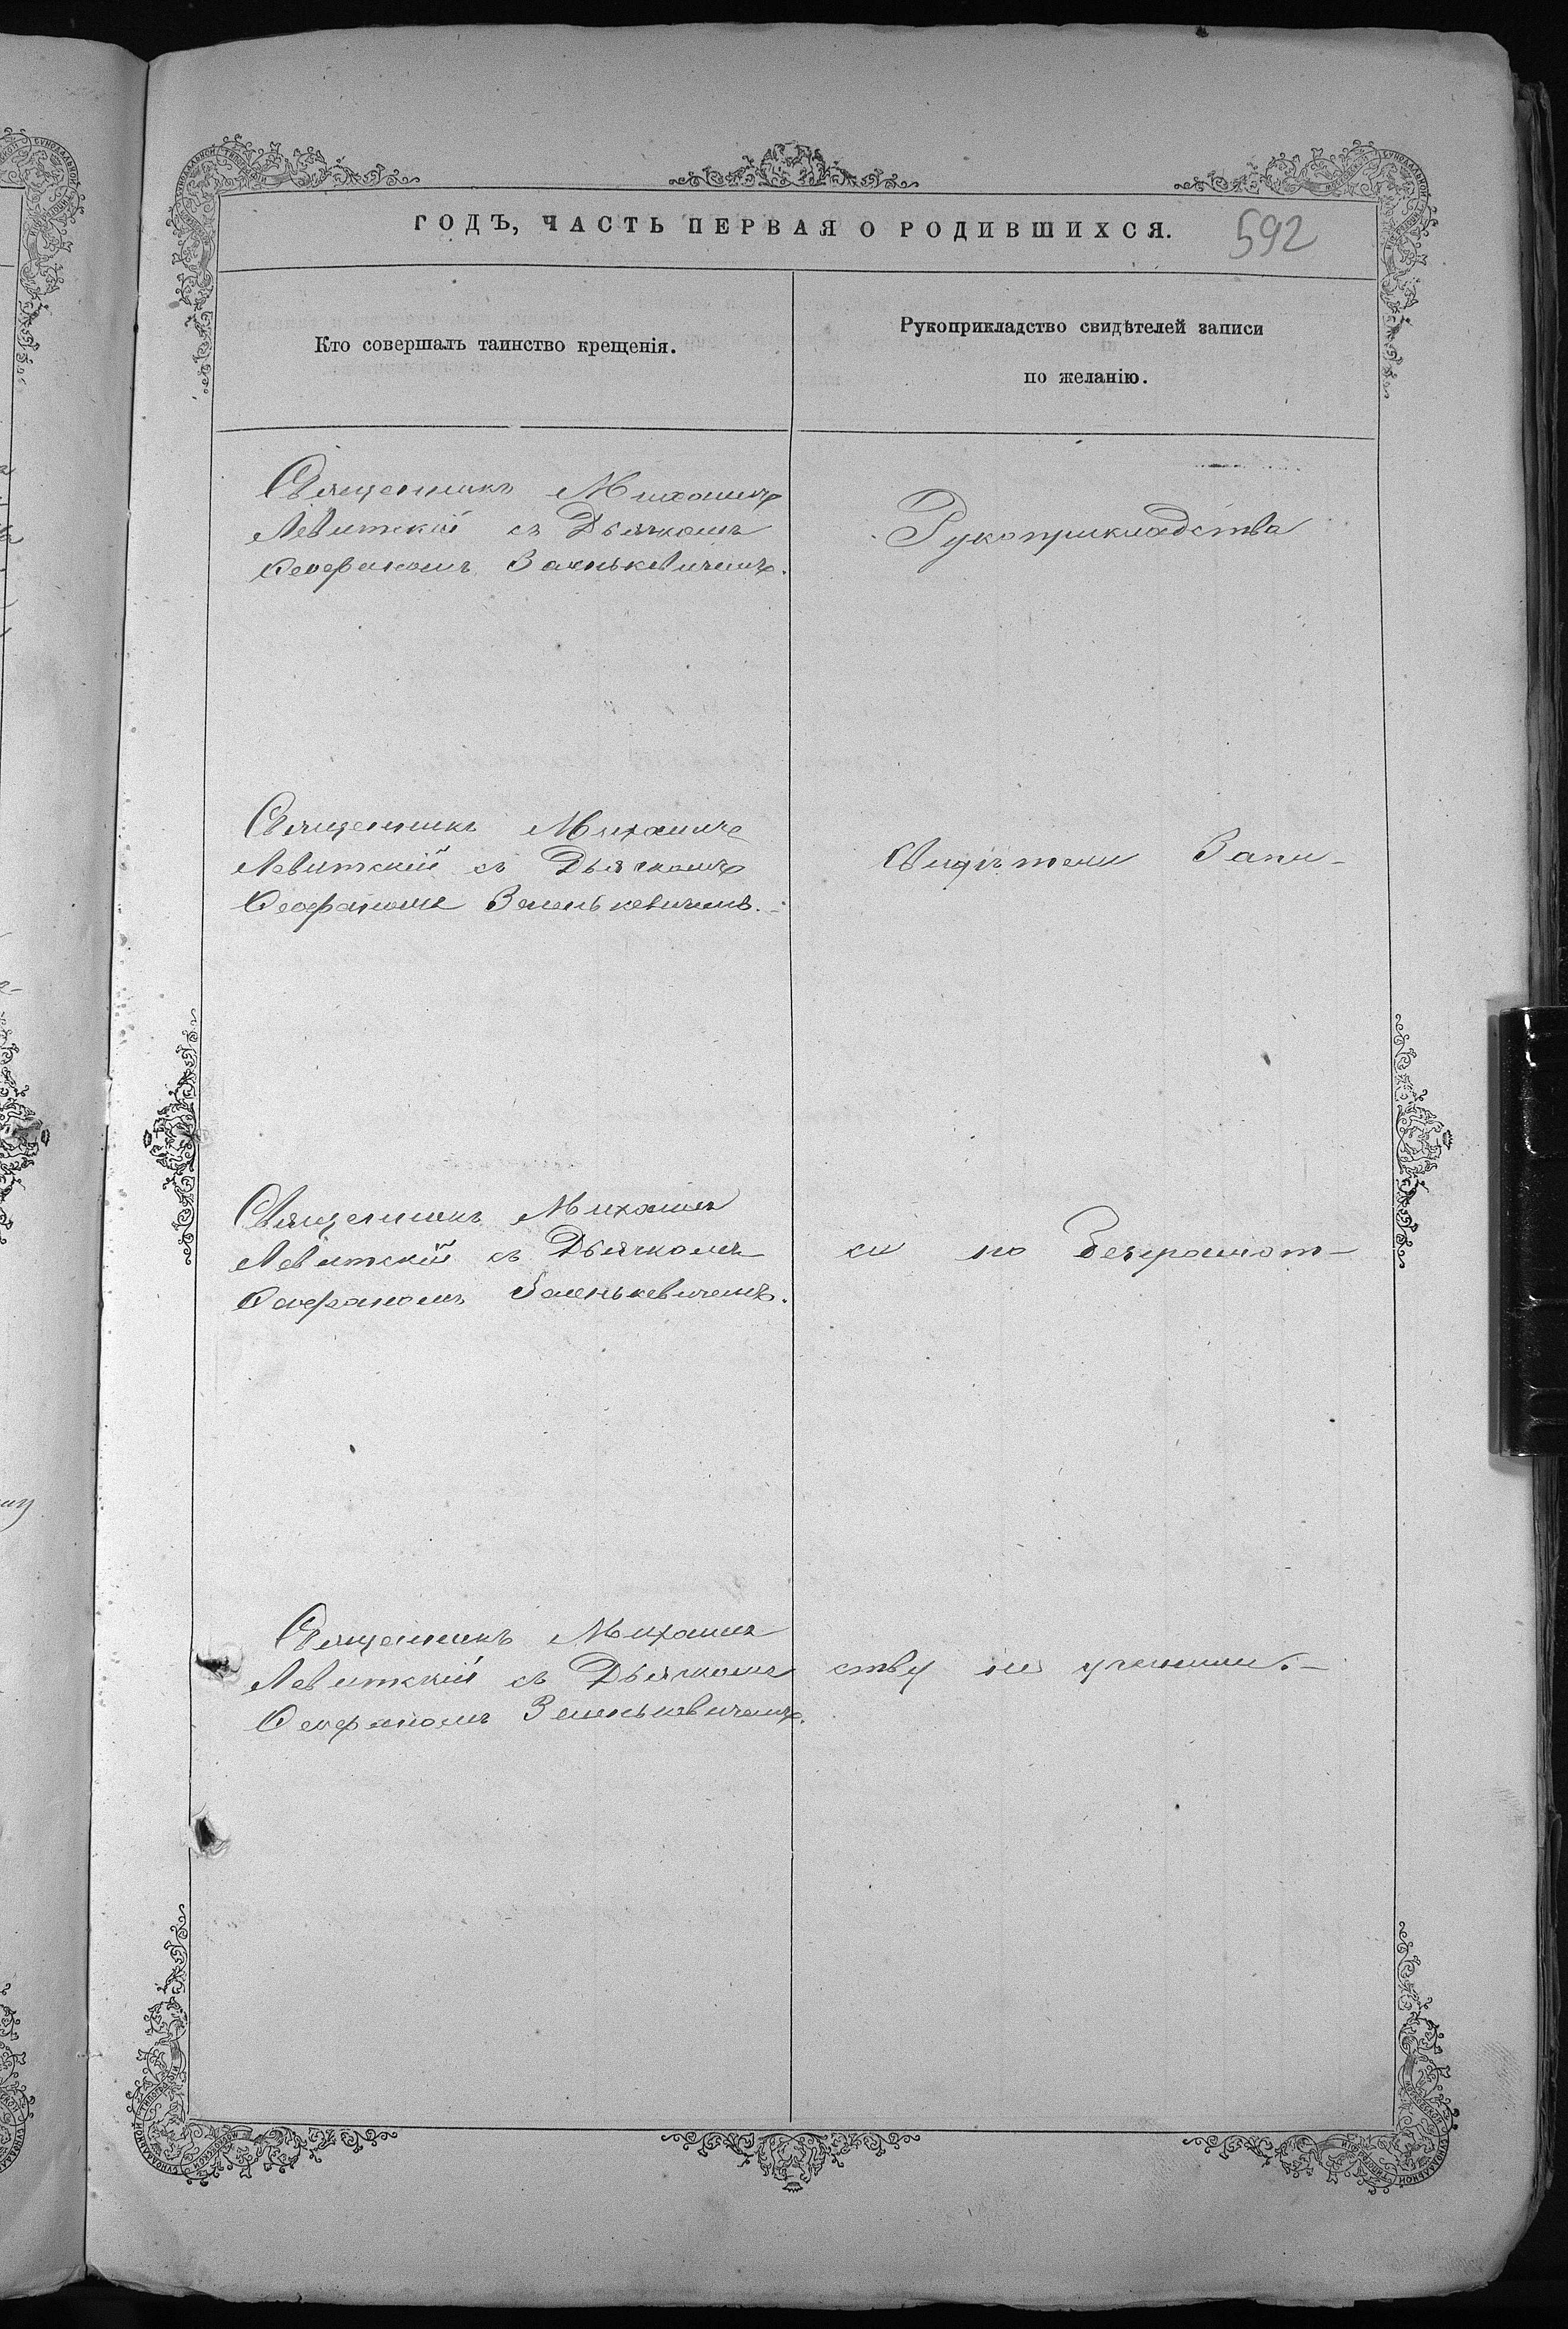 ГОДЪ, ЧАСТЬ ПЕРВАЯ О РОДИВШИХСЯ.
592
Кто совершалъ таинство крещенія.
Рукоприкладство свидѣтелей записи
по желанію.
Священникъ Михаилъ
Левитскій съ Дьячкомъ
Ѳеофаномъ Заенькевичемъ.
Рукоприкладства
Священникъ Михаилъ
Левитскій съ Дьячкомъ
Ѳеофаномъ Заенькевичемъ.
свидѣтели Запи-
Священникъ Михаилъ
Левитскій съ Дьячкомъ
Ѳеофаномъ Заенькевичемъ.
си по безграмот-
Священникъ Михаилъ
Левитскій съ Дьячкомъ
Ѳеофаномъ Заенькевичемъ.
ству не учинили.-